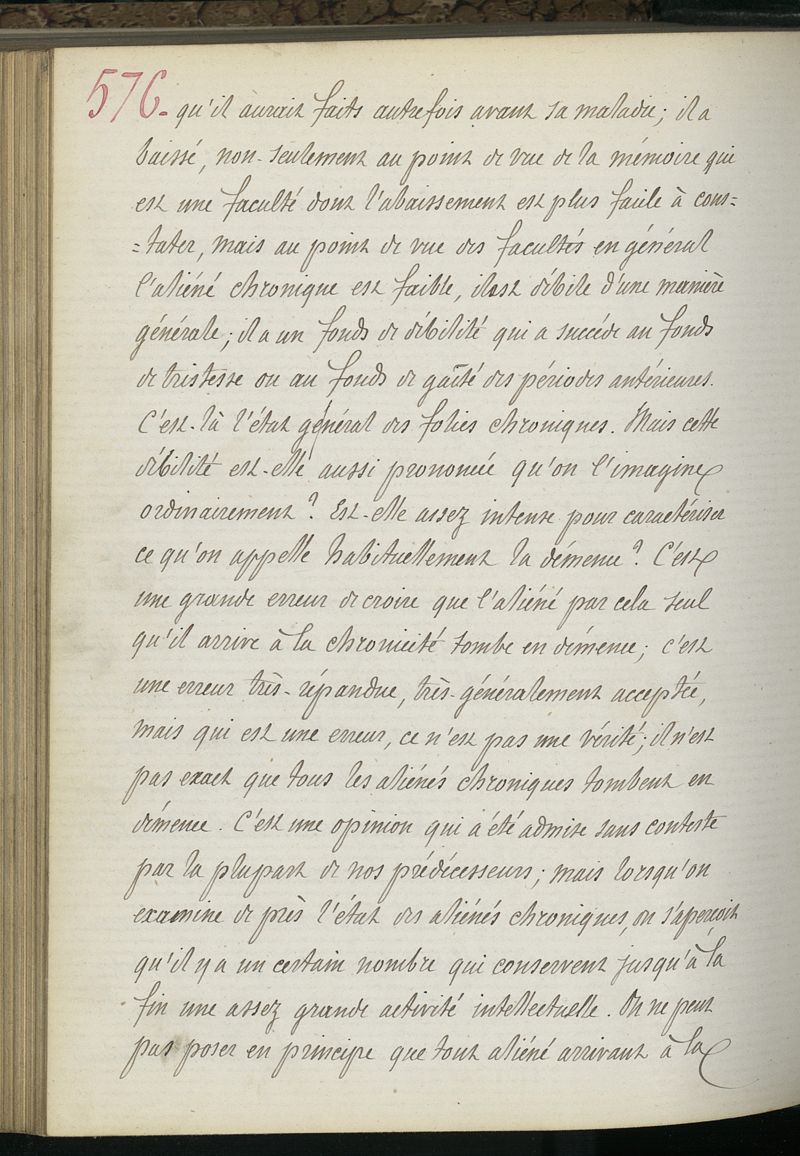 576. qu'il aurait faits autrefois avant sa maladie; il a
baissé, non-seulement au point de vue de la mémoire qui
est une faculté dont l'abaissement est plus facile à cons=
=tater, mais au point de vue des facultés en général
l'aliéné chronique est faible, il est débile d'une manière
générale; il a un fonds de débilité qui a succédé au fonds
de tristesse ou au fonds de gaîté des périodes antérieures.
C'est-là l'état général des folies chroniques. Mais cette
débilité est-elle aussi prononcée qu'on l'imagine
ordinairement? Est-elle assez intense pour caractériser
ce qu'on appelle habituellement la démence? C'est
une grande erreur de croire que l'aliéné par cela seul
qu'il arrive à la chronicité tombe en démence; c'est
une erreur très-répandue, très-généralement acceptée,
mais qui est une erreur, ce n'est pas une vérité; il n'est
pas exact que tous les aliénés chroniques tombent en
démence. C'est une opinion qui a été admise sans conteste
par la plupart de nos prédécesseurs; mais lorsqu'on
examine de près l'état des aliénés chroniques, on s'aperçoit
qu'il y a un certain nombre qui conservent jusqu'à la
fin une assez grande activité intellectuelle. On ne peut
pas poser en principe que tout aliéné arrivant à la